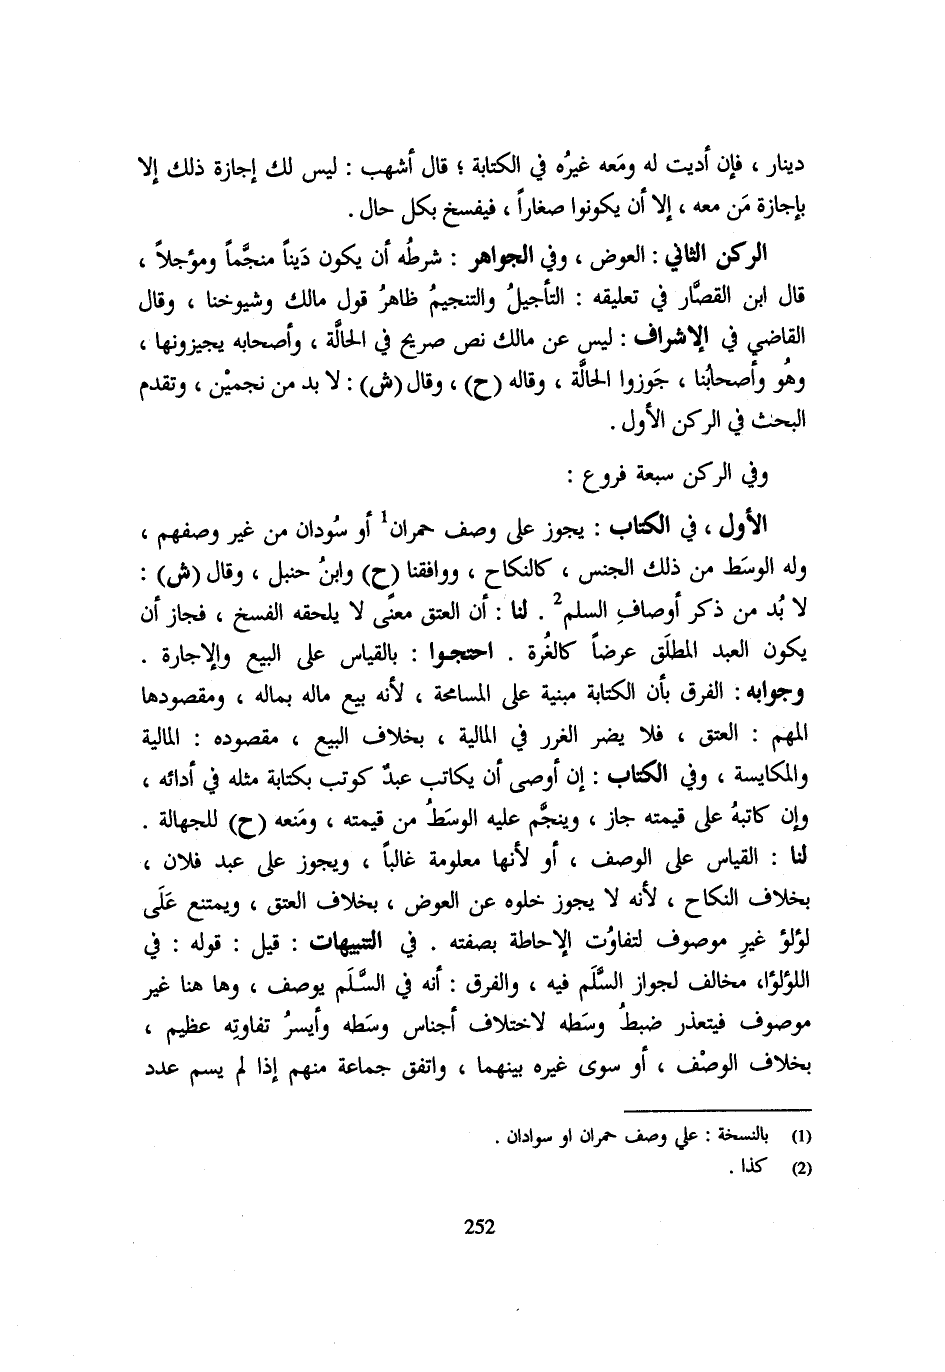 دينار ، فإن أديت له ومَعه غيرُه في الكتابة ؛ قال أشهب : ليس لك إجازة ذلك إلا
بإجازة مَن معه ، إلا أن يكونوا صغاراً ، فيفسخ بكل حال .
الركن الثاني : العوض ، وفي الجواهر : شرطُه أن يكون دَيناً منجَّماً ومؤجلاً ،
قال ابن القصَّار في تعليقه : التأجيلُ والتنجيمُ ظاهرُ قول مالك وشيوخنا ، وقال
القاضي في الإشراف : ليس عن مالك نص صريح في الحالَّة ، وأصحابه يجيزونها ،
وهُو وأصحابُنا ، جَوزوا الحالَّة ، وقاله (ح) ، وقال (ش) : لا بد من نجميْن ، وتقدم
البحث في الركن الأول .
وفي الركن سبعة فروع :
الأول ، في الكتاب : يجوز على وصف حمران1 أو سُودان من غير وصفهم ،
وله الوسَط من ذلك الجنس ، كالنكاح ، ووافقنا (ح) وابنُ حنبل ، وقال (ش) :
لا بُد من ذكر أوصافِ السلم2 . لنا : أن العتق معنًى لا يلحقه الفسخ ، فجاز أن
يكون العبد المطلَق عرضاً كالغُرة . احتجوا : بالقياس على البيع والإجارة .
وجوابه : الفرق بأن الكتابة مبنية على المسامحة ، لأنه بيع ماله بماله ، ومقصودها
المهم : العتق ، فلا يضر الغرر في المالية ، بخلاف البيع ، مقصوده : المالية
والمكايسة ، وفي الكتاب : إن أوصى أن يكاتب عبدٌ كوتب بكتابة مثله في أدائه ،
وإن كاتبهُ على قيمته جاز ، وينجَّم عليه الوسَطُ من قيمته ، ومَنعه (ح) للجهالة .
لنا : القياس على الوصف ، أو لأنها معلومة غالباً ، ويجوز على عبد فلان ،
بخلاف النكاح ، لأنه لا يجوز خلوه عن العوض ، بخلاف العتق ، ويمتنع عَلَى
لؤلؤ غيرِ موصوف لتفاوُت الإحاطة بصفته . في التنبيهات : قيل : قوله : في
اللؤلؤا، مخالف لجواز السَّلَم فيه ، والفرق : أنه في السَّلَم يوصف ، وها هنا غير
موصوف فيتعذر ضبطُ وسَطه لاختلاف أجناس وسَطه وأيسرُ تفاوتِه عظيم ،
بخلاف الوصْف ، أو سوى غيره بينهما ، واتفق جماعة منهم إذا لم يسم عدد
(1) بالنسخة : علي وصف حمران او سوادان .
(2) كذا .
252